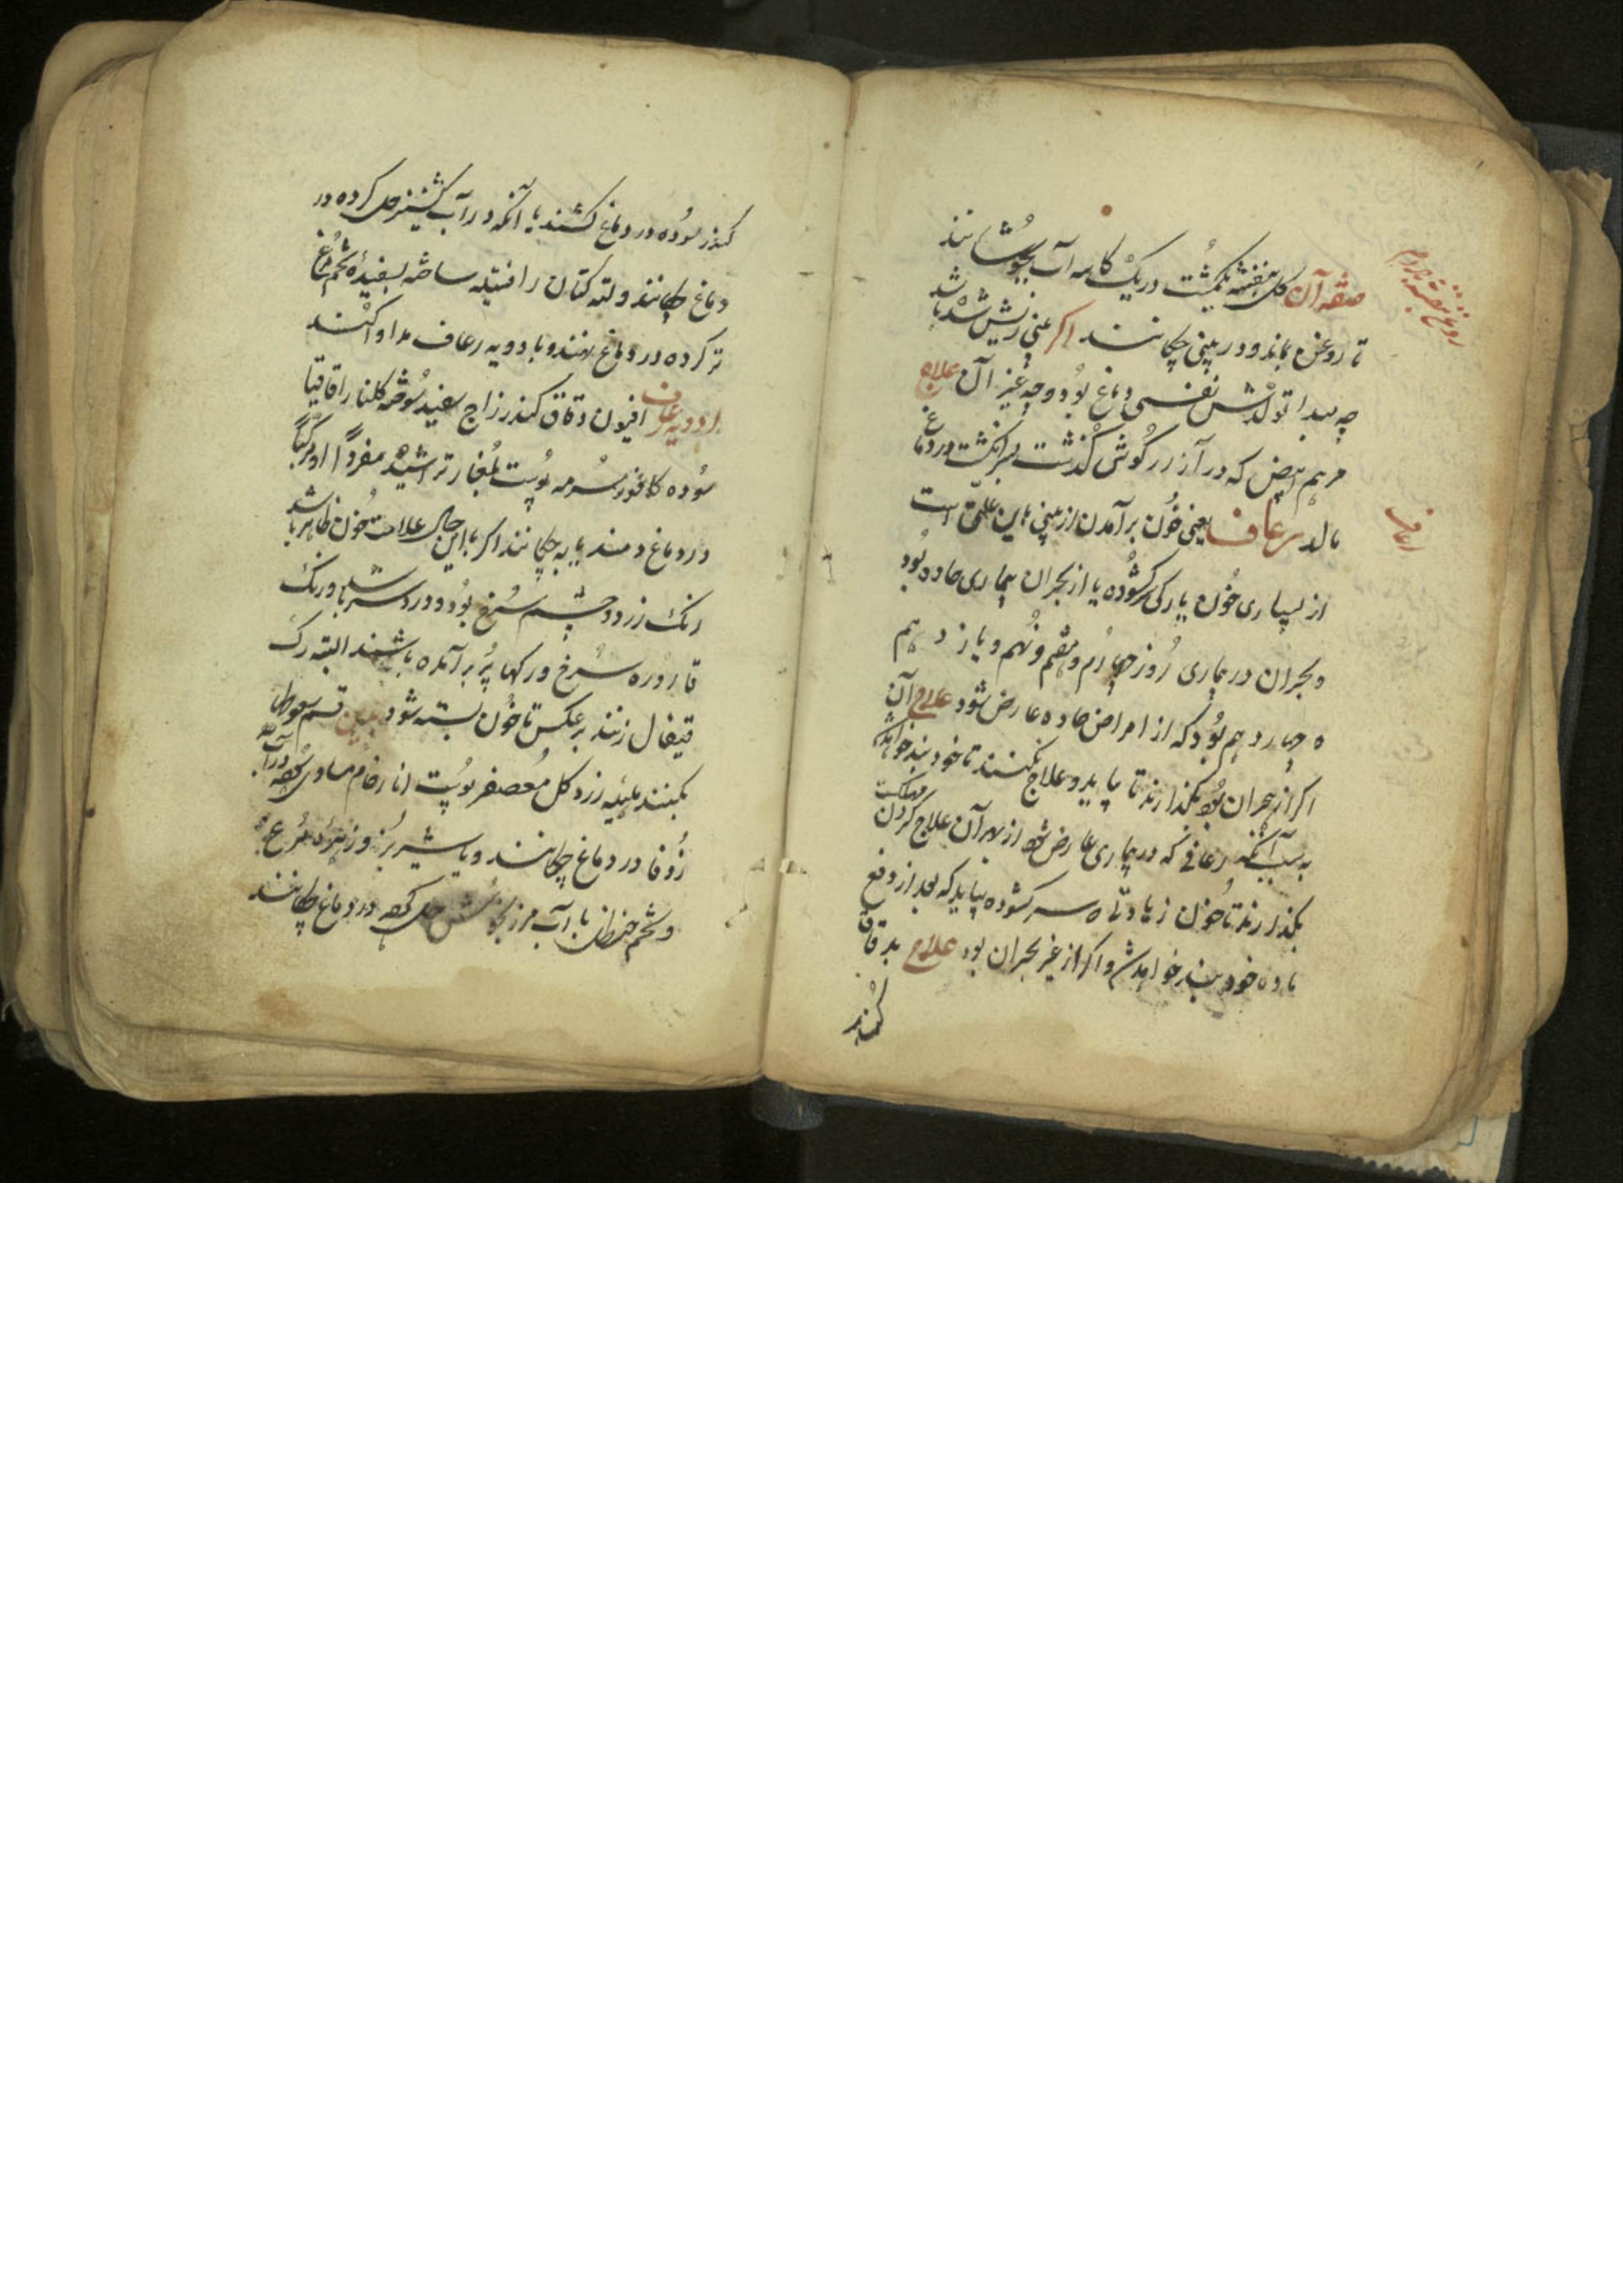 صفه آن گل بنفشه یکمشت در یک کاسه آب بجوشانند
تا روغن بماند و در بینی چکانند اگر بینی ریش شده باشد
چه مبدا تولدش نفسی دماغ بود و چه غیر آن علاج
مرهم ابیض که در آزار گوش گذشت بسر انگشت در دماغ
مالد رعاف یعنی خون برآمدن از بینی و این علت است
از بسیاری خون یا رگی سر کشوده یا از بحران بیماری حاده بود
و بحران در بیماری روز چهارم و هفتم و نهم و یازدهم
و چهاردهم بود که از امراض حاده عارض شود علاج آن
اگر از بحران بود بگذارند تا بیاید و علاج نکنند تا خود بند خواهد شد
به سبب آنکه رعافی که در بیماری عارض شود از بهر آن علاج کردن مهلکست
بگذارند تا خون زیادتی سر کشوده بیاید که بعد از دفع
ماده خود بند خواهد شد و اگر از غیر بحران بود علاج بدقاق
کندر
رعاف
کندر سوده در دماغ کشند یا آنکه در آب کشنیز حل کرده در
دماغ چکانند و لته کتان را فتیله ساخته بسفیده تخم مرغ
تر کرده در دماغ نهند و بادویه رعاف مداوا کنند
ادویه رعاف افیون دقاق کندر زاج سفید سوخته گلنار اقاقیا
سوده کافور سرمه پوست بلغار تراشیده مفردا او مرکبا
در دماغ دمند یا به چکانند اگر با این حال علامت خون ظاهر باشد
رنگ زرد و چشم سرخ بود و درد سر باشد و رنگ
قاروره سرخ و رگها پر برآمده باشند البته رگ
قیفال زنند بر عکس تا خون بسته شود بدین قسم سعوط
بکنند هلیله زرد گل معصفر پوست انار خام مساوی کوفته در آب
زوفا در دماغ چکانند و یا شیر بز و زهره مرغ
و شحم حنظل با آب مرزنجوش حل کرده در دماغ چکانند